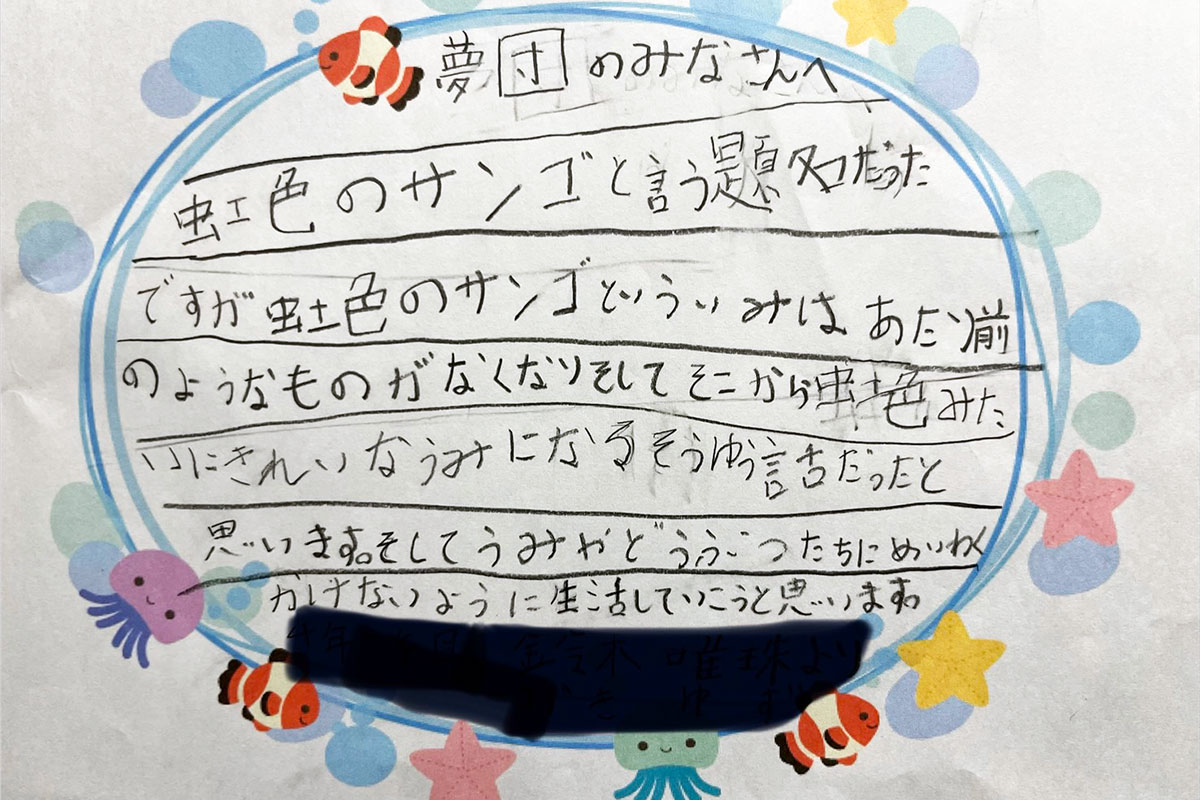 夢団のみなさんへ
虹色のサンゴと言う題名だった
ですが虹色のサンゴといういみはあたり前
のようなものがなくなりそしてそこから虹色みた
いにきれいなうみになるそうゆう話だったと
思います。そしてうみやどうぶつたちにめいわく
かけないように生活していこうと思います。